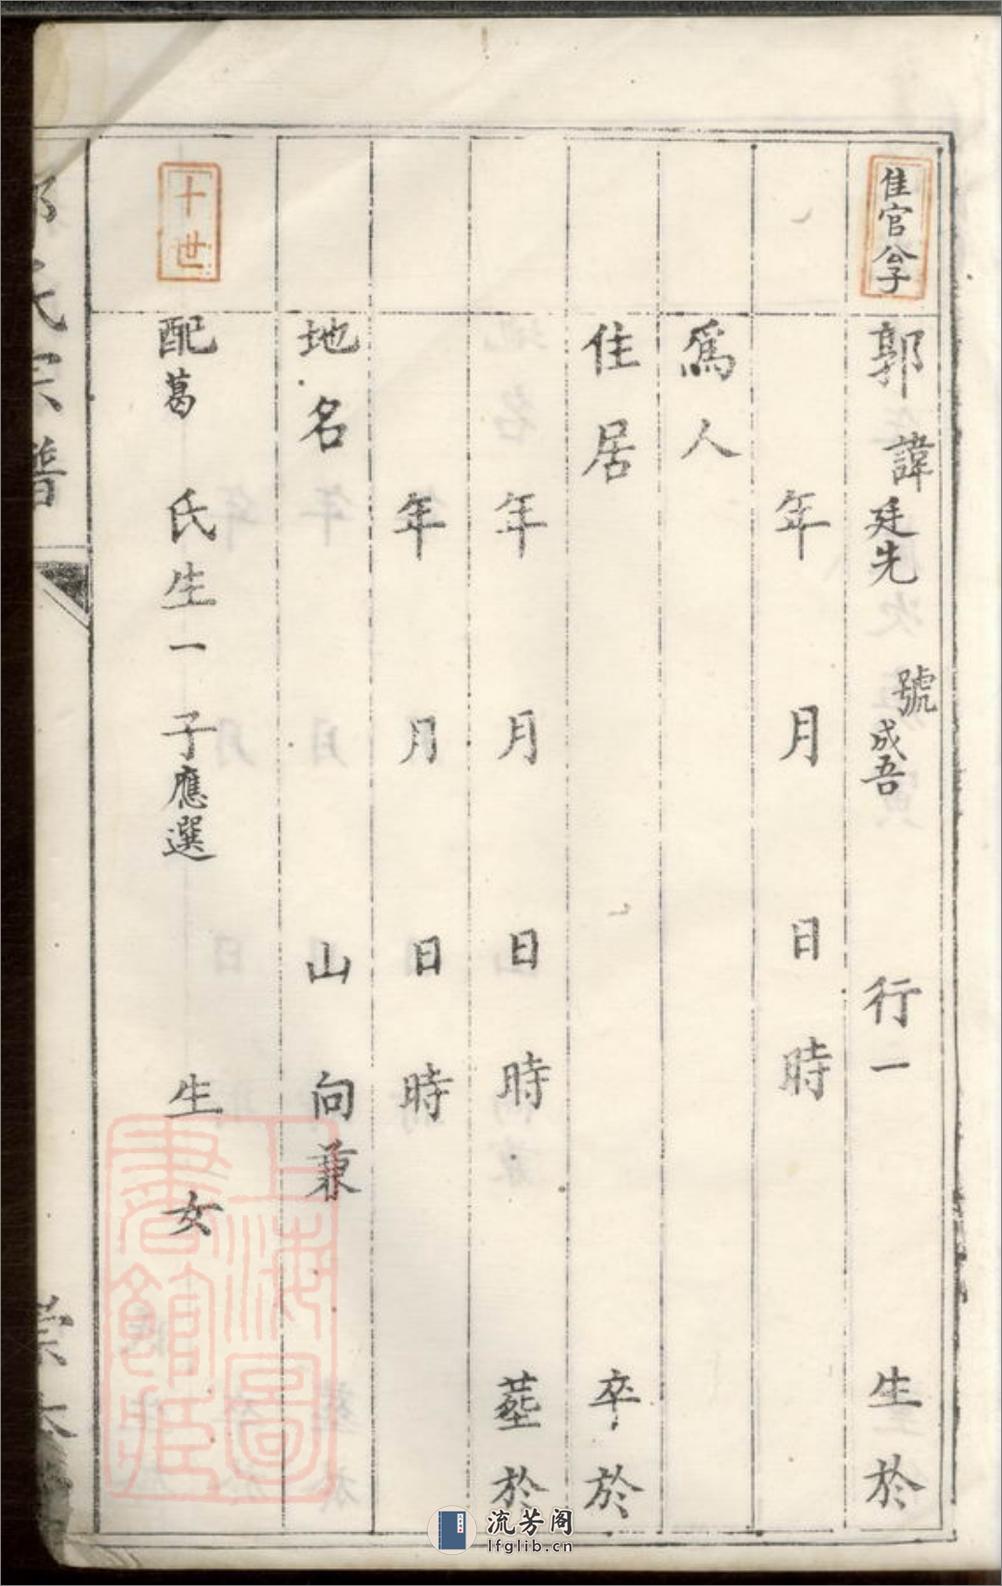 隹官公子
郭 諱廷先 號成吾 行一 生於
年 月 日 時
為人
住居 卒於
年 月 日 時 塟於
年 月 日 時
地名 山 向兼
十世
配葛 氏生一 子應選 生 女
氏宗譜
崇本
上海圖書館藏
流芳阁
lfglib.cn